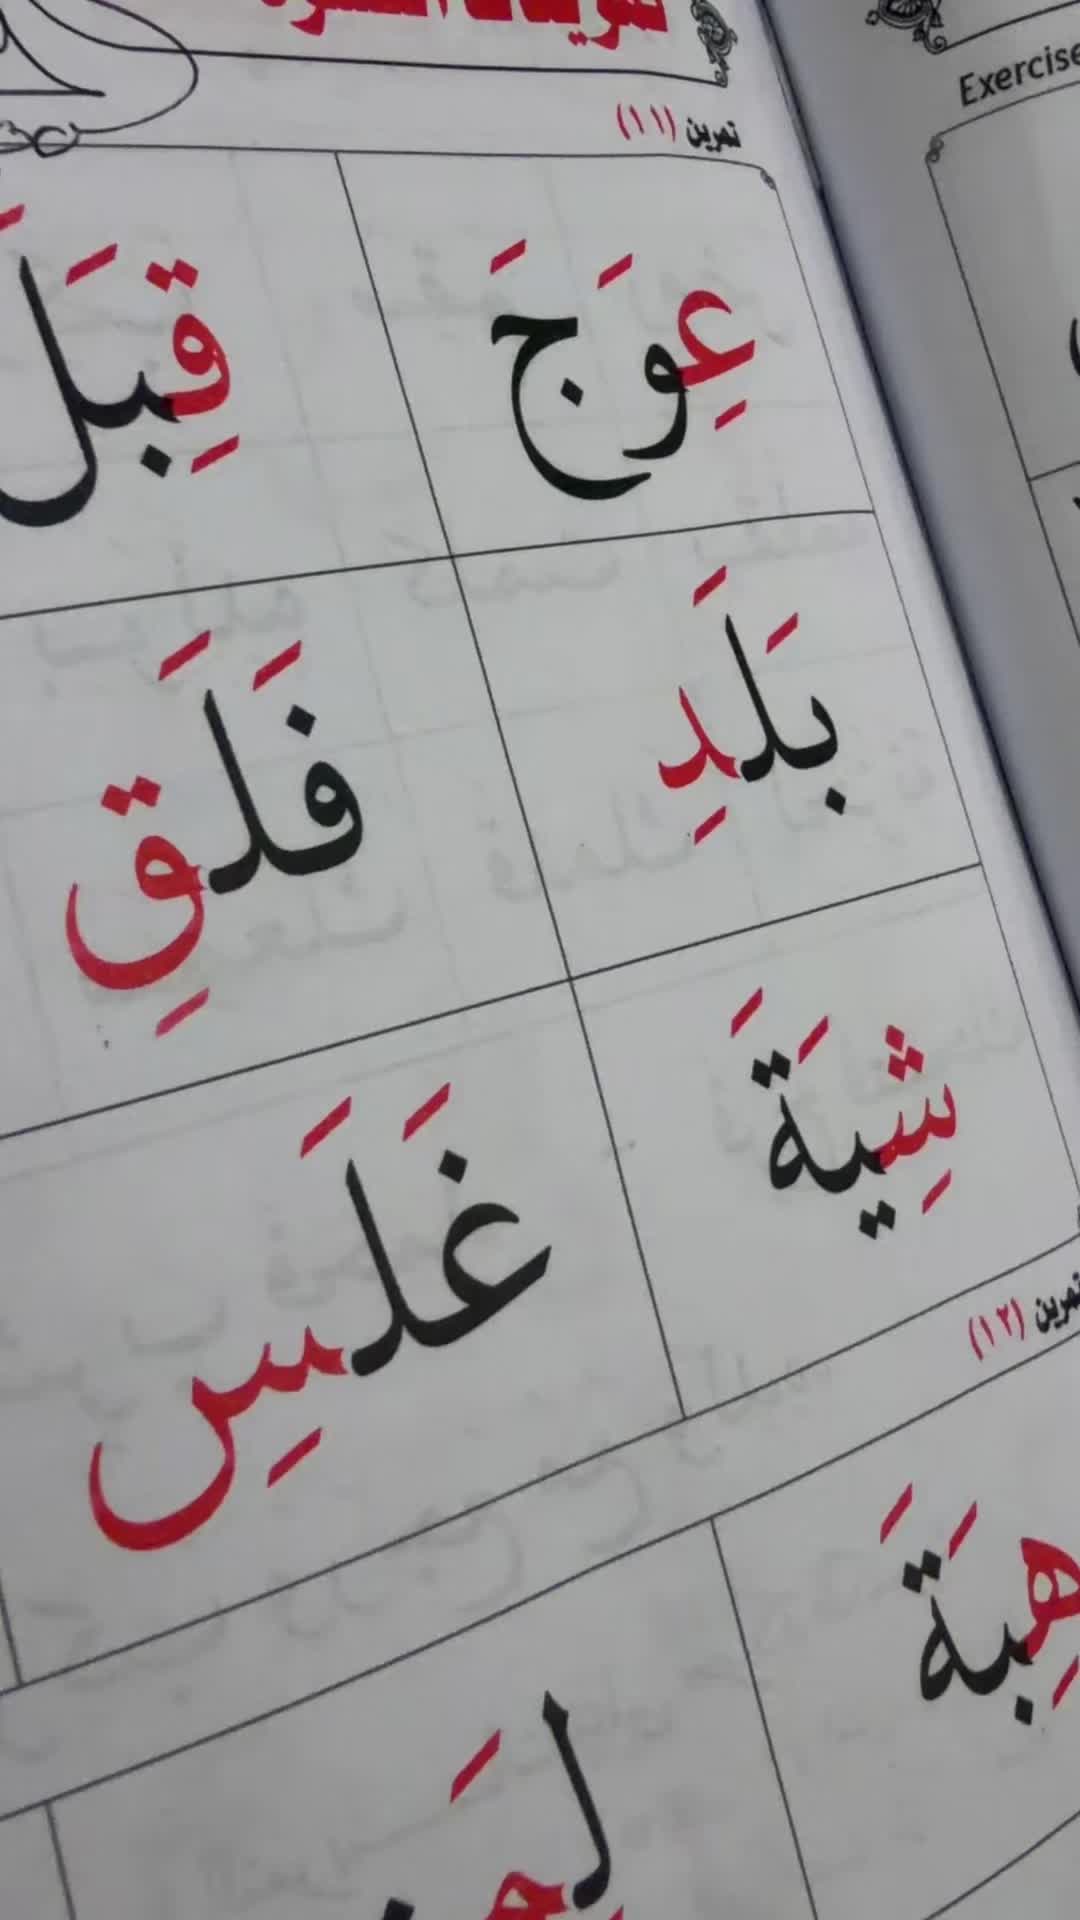 Exercise
تمرين (١١)
عِوَجَ قِبَلَ
بَلَدِ فَلَقِ
شِيَةَ غَلَسِ
تمرين (١٢)
هِبَةَ